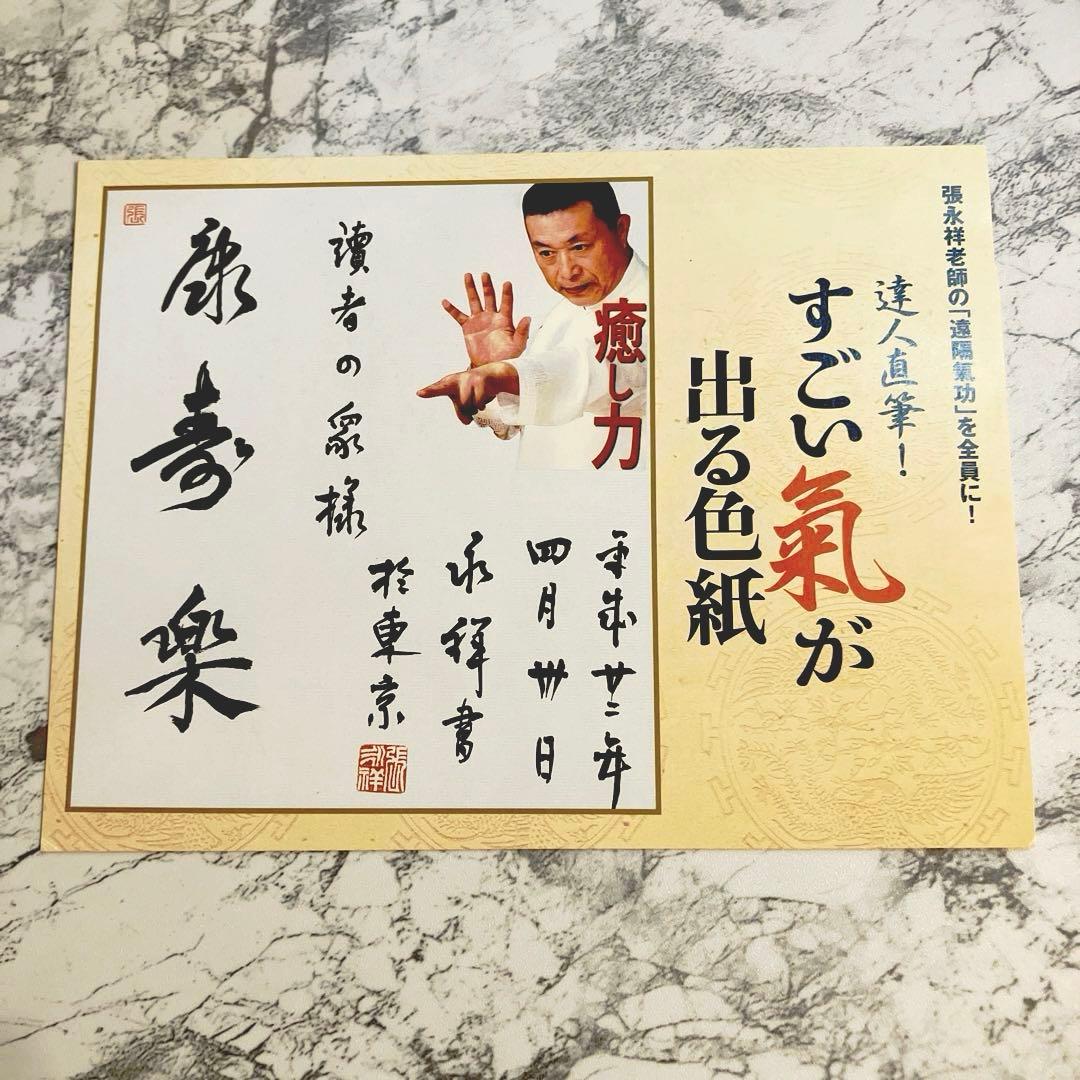 張永祥老師の「遠隔氣功」を全員に！
達人直筆！
すごい氣が
出る色紙
癒し力
平成廿二年
四月卅日
永祥書
於東京
讀者の眾樣
康壽樂
張
張永祥